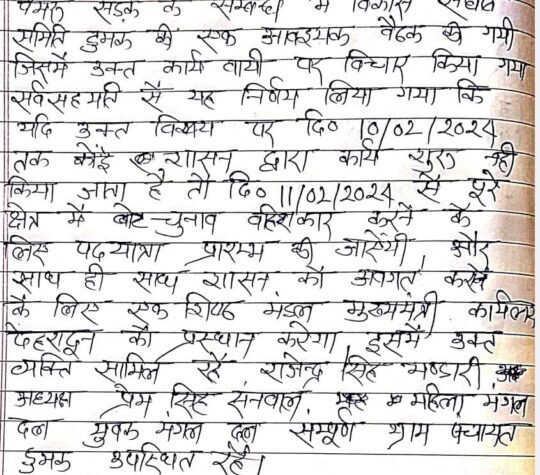 चमल सड़क के सम्बन्ध में विकास संघर्ष
समिति डुमक की एक आवश्यक बैठक की गयी
जिसमें उक्त कार्य वायी पर विचार किया गया
सर्वसहमती से यह निर्णय लिया गया कि
यदि उक्त विषय पर दि० 10/02/2024
तक कोई शासन द्वारा कार्य शुरू नही
किया जाता है तो दि० 11/02/2024 से पूरे
क्षेत्र में वोट-चुनाव वहिष्कार करने के
लिए पदयात्रा प्रारम्भ की जायेगी, और
साथ ही साथ शासन को अवगत करने
के लिए एक शिष्ट मंडल मुख्यमंत्री कार्यालय
देहरादून को प्रस्थान करेगा, इसमें उक्त
व्यक्ति सामिल रहे राजेन्द्र सिंह भण्डारी,
अध्यक्ष प्रेम सिंह सनवाल, महिला मंगल
दल युवक मंगल दल सम्पूर्ण ग्राम पंचायत
डुमक उपस्थित रहे।